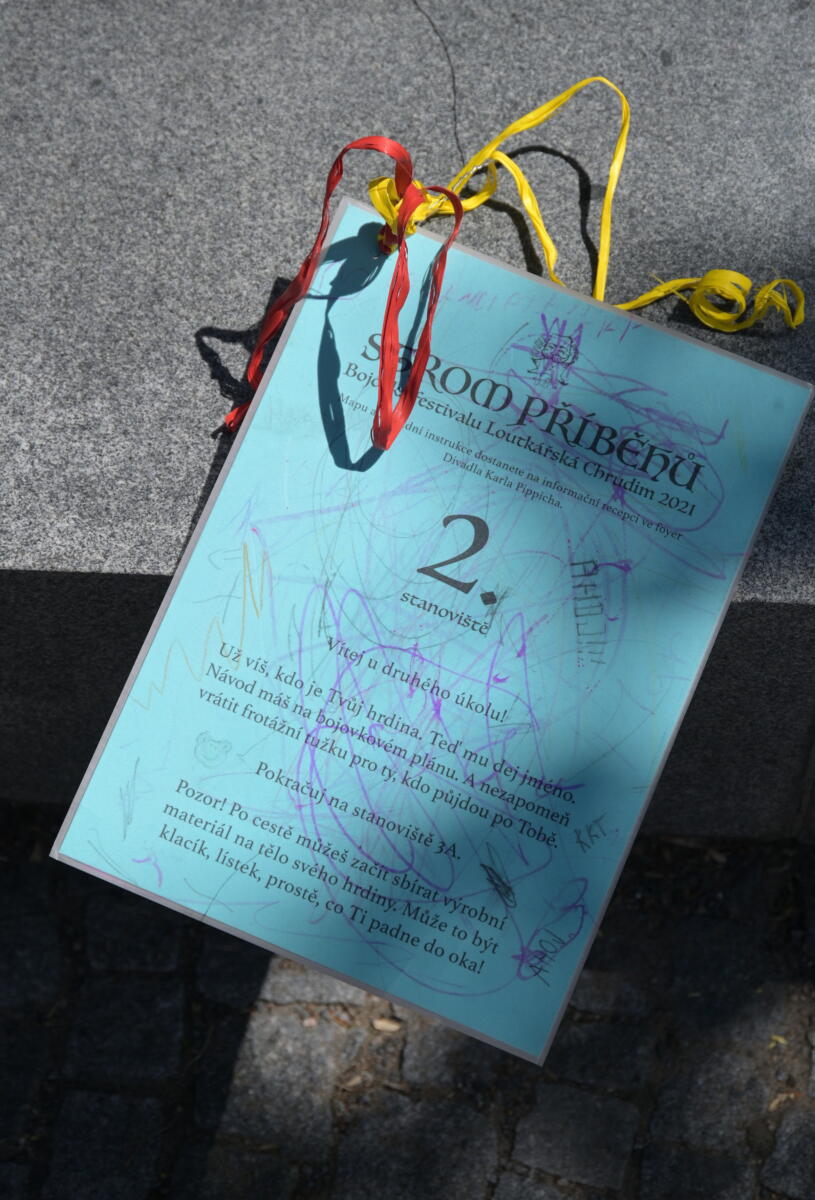 STROM PŘÍBĚHŮ
Bojovka festivalu Loutkářská Chrudim 2021
Mapu a dní instrukce dostanete na informační recepci ve foyer
Divadla Karla Pippicha.
2.
stanoviště
AHOJ!!!
Vítej u druhého úkolu!
Už víš, kdo je Tvůj hrdina. Teď mu dej jméno.
Návod máš na bojovkovém plánu. A nezapomeň
vrátit frotážní tužku pro ty, kdo půjdou po Tobě.
Pokračuj na stanoviště 3A.
Pozor! Po cestě můžeš začít sbírat výrobní
materiál na tělo svého hrdiny. Může to být
klacík, lístek, prostě, co Ti padne do oka!